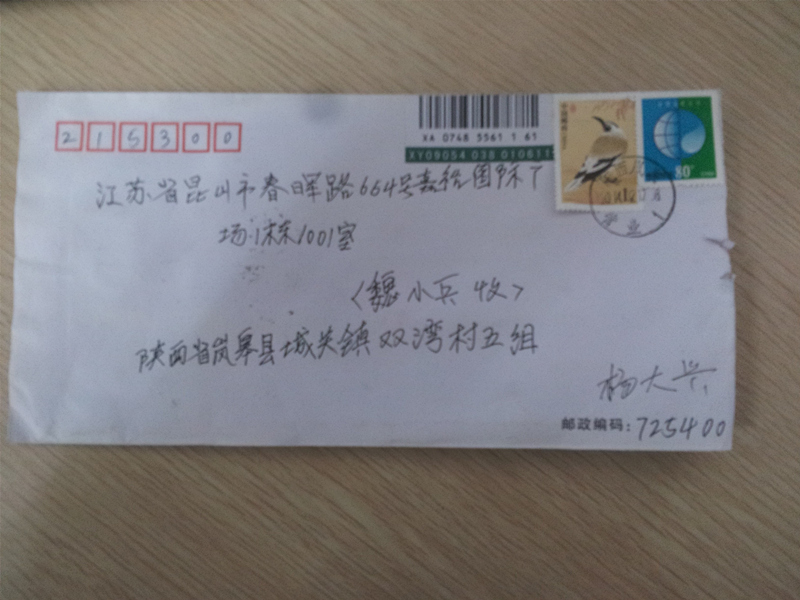 215300
XA 0748 5561 1 61
XY09054 038 010611
80
江苏省昆山市春晖路664号嘉裕国际广
场1栋1001室
(魏小兵 收)
陕西省岚皋县城关镇双湾村五组
杨大兴
邮政编码:725400